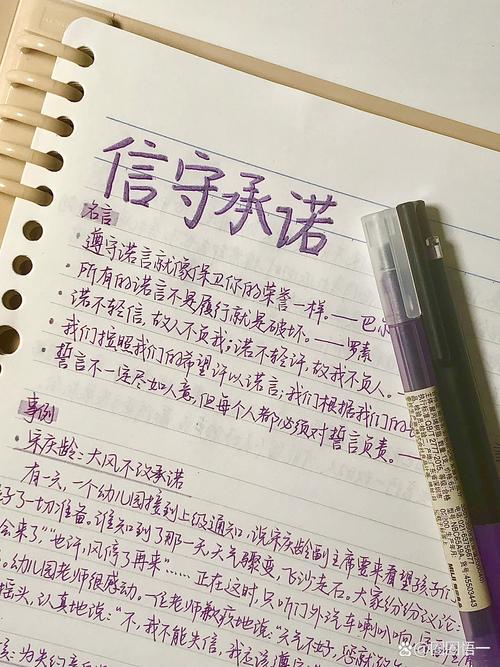 信守承诺
名言
· 遵守诺言就像保卫你的荣誉一样。——巴尔
· 所有的诺言不是履行就是破坏。——罗素
· 诺不轻信,故人不负我;诺不轻许,故我不负人。——
· 我们按照我们的希望许以诺言;我们根据我们的
· 誓言不一定尽如人意,但每个人都必须对誓言负责。—
事例
· 宋庆龄:大风不改承诺
有一天,一个幼儿园接到上级通知,说宋庆龄副主席要来看望孩子们
了一切准备。谁知到了那一天,天气骤变,飞沙走石。大家纷纷议论:
会来了”“也许,风停了再来”……正在这时,只听门外汽车喇叭响,
幼儿园老师很感动。一位老师歉疚地说:“天气不好,您就
摇头,认真地说:“不,我不能失信,我应该遵
圈圈悟一